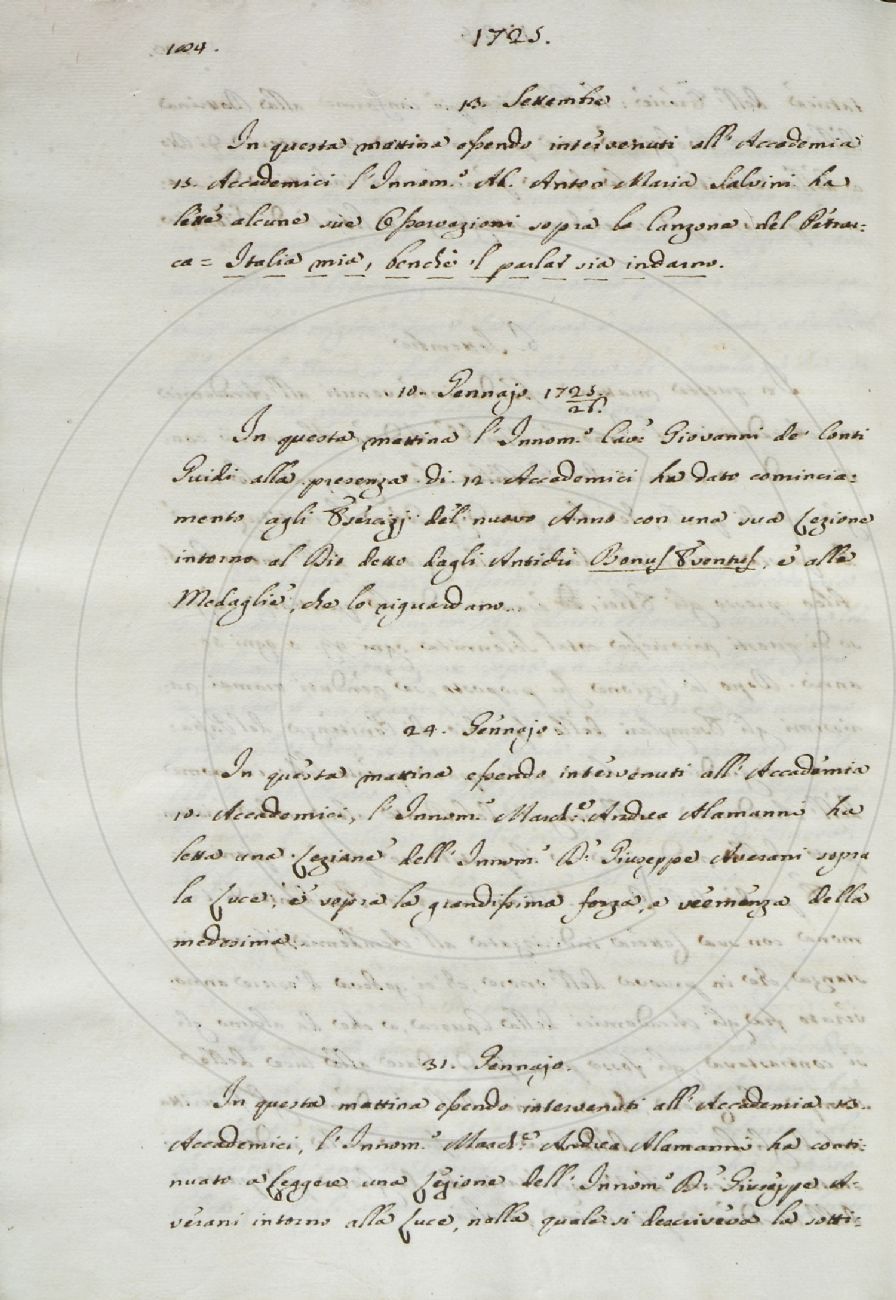 104.
1725.
13. Settembre
In questa mattina essendo intervenuti all'Accademia
15. Accademici l'Innom.º Ab. Anton Maria Salvini ha
lette alcune sue Osservazioni sopra la Canzone del Petrar:
ca = Italia mia, benchè 'l parlar sia indarno.
10. Gennajo 1725./26.
In questa mattina l'Innom.º Cav.e Giovanni de' Conti
Guidi alla presenza di 12. Accademici ha dato comincia:
mento agli Esercizj del nuovo Anno con una sua Lezione
intorno al Dio detto dagli Antichi Bonus Eventus, e alle
Medaglie, che lo riguardano.
24. Gennajo
In questa mattina essendo intervenuti all'Accademia
10. Accademici, l'Innom.º March.e Andrea Alamanni ha
letta una Lezione dell'Innom.º D.r Giuseppe Averani sopra
la Luce, e sopra la grandissima forza, e veemenza della
medesima.
31. Gennajo.
In questa mattina essendo intervenuti all'Accademia 13.
Accademici, l'Innom.º March.e Andrea Alamanni ha conti:
nuato a Leggere una Lezione dell'Innom.º D.r Giuseppe A:
verani intorno alla Luce, nella quale si descriveva la sotti: